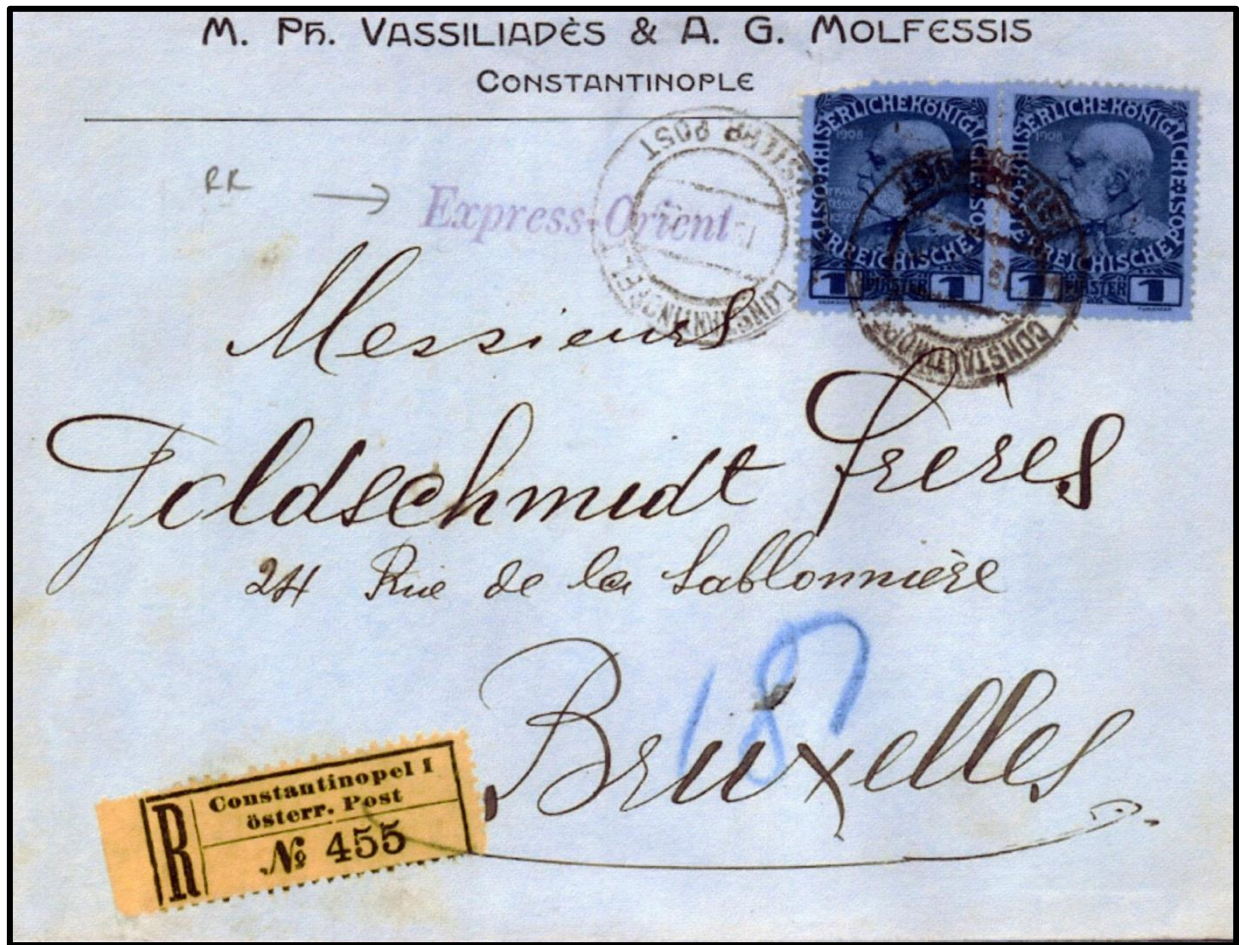 M. Ph. VASSILIADÈS & A. G. MOLFESSIS
CONSTANTINOPLE
RR
Express-Orient
KAISERLICHEKÖNIGLICHE
ÖSTERREICHISCHE POST
1908
1 PIASTER 1
KAISERLICHEKÖNIGLICHE
ÖSTERREICHISCHE POST
1908
1 PIASTER 1
Messieurs
Goldschmidt Frères
24 Rue de la Sablonnière
187
Bruxelles
R
Constantinopel I
österr. Post
№ 455